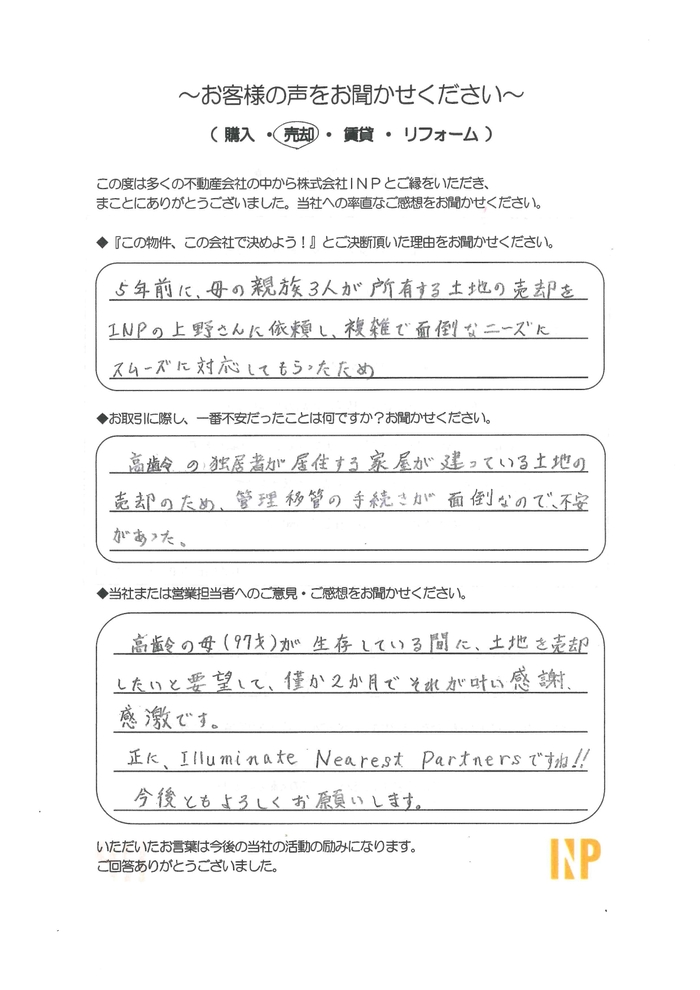 ～お客様の声をお聞かせください～
（ 購入 ・ 売却 ・ 賃貸 ・ リフォーム ）
この度は多くの不動産会社の中から株式会社ＩＮＰとご縁をいただき、
まことにありがとうございました。当社への率直なご感想をお聞かせください。
◆『この物件、この会社で決めよう！』とご決断頂いた理由をお聞かせください。
5年前に、母の親族3人が所有する土地の売却を
INPの上野さんに依頼し、複雑で面倒なニーズに
スムーズに対応してもらったため
◆お取引に際し、一番不安だったことは何ですか？お聞かせください。
高齢の独居者が居住する家屋が建っている土地の
売却のため、管理移管の手続きが面倒なので、不安
があった。
◆当社または営業担当者へのご意見・ご感想をお聞かせください。
高齢の母(97才)が生存している間に、土地を売却
したいと要望して、僅か2か月でそれが叶い感謝、
感激です。
正に、Illuminate Nearest Partnersですね!!
今後ともよろしくお願いします。
いただいたお言葉は今後の当社の活動の励みになります。
ご回答ありがとうございました。
INP